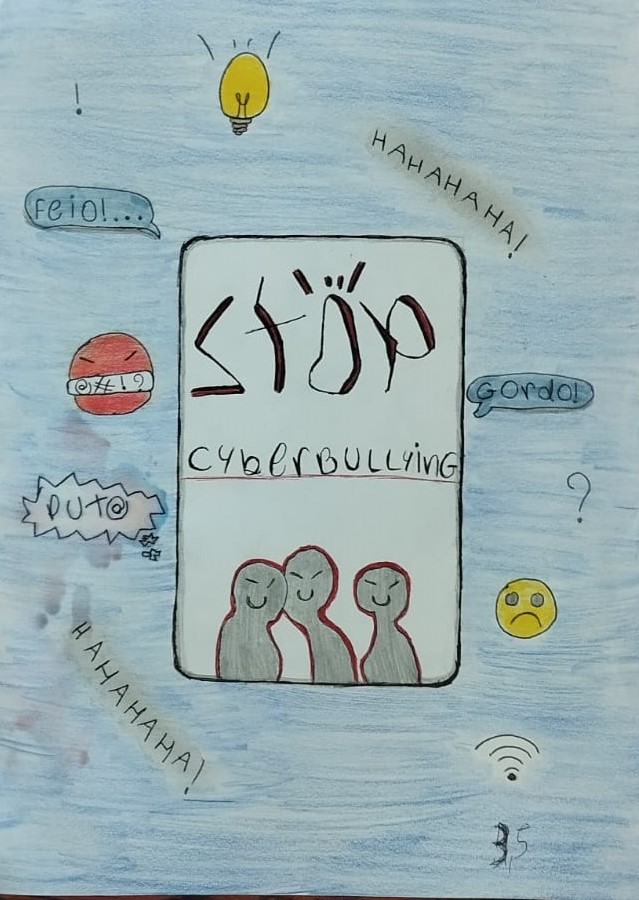 !
HAHAHAHA!
Feio!...
STOP
@#!?
GOrdo!
CYberBULLYinG
PUT@
?
HAHAHAHA!
3,5